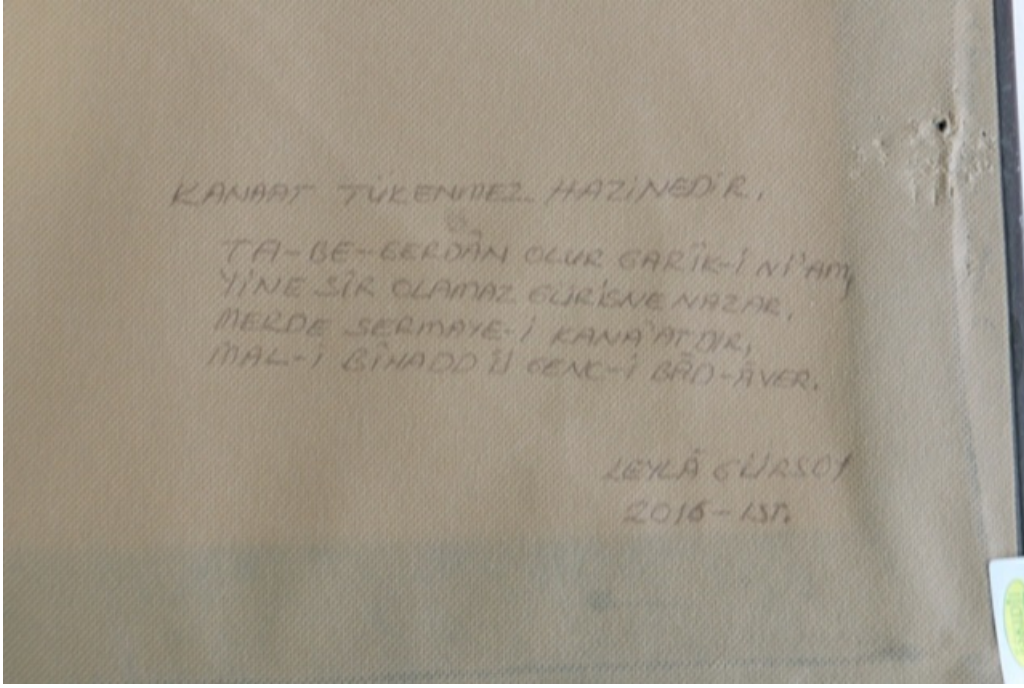 KANAAT TÜKENMEZ HAZİNEDİR.
TA-BE-GERDÂN OLUR GARÎK-İ Nİ'AM,
YİNE SÎR OLAMAZ GÜRİSNE NAZAR,
MERDE SERMAYE-İ KANA'ATDIR,
MAL-İ BÎHADD Ü GENC-İ BÂD-ÂVER.
LEYLÂ GÜRSOY
2016-İST.